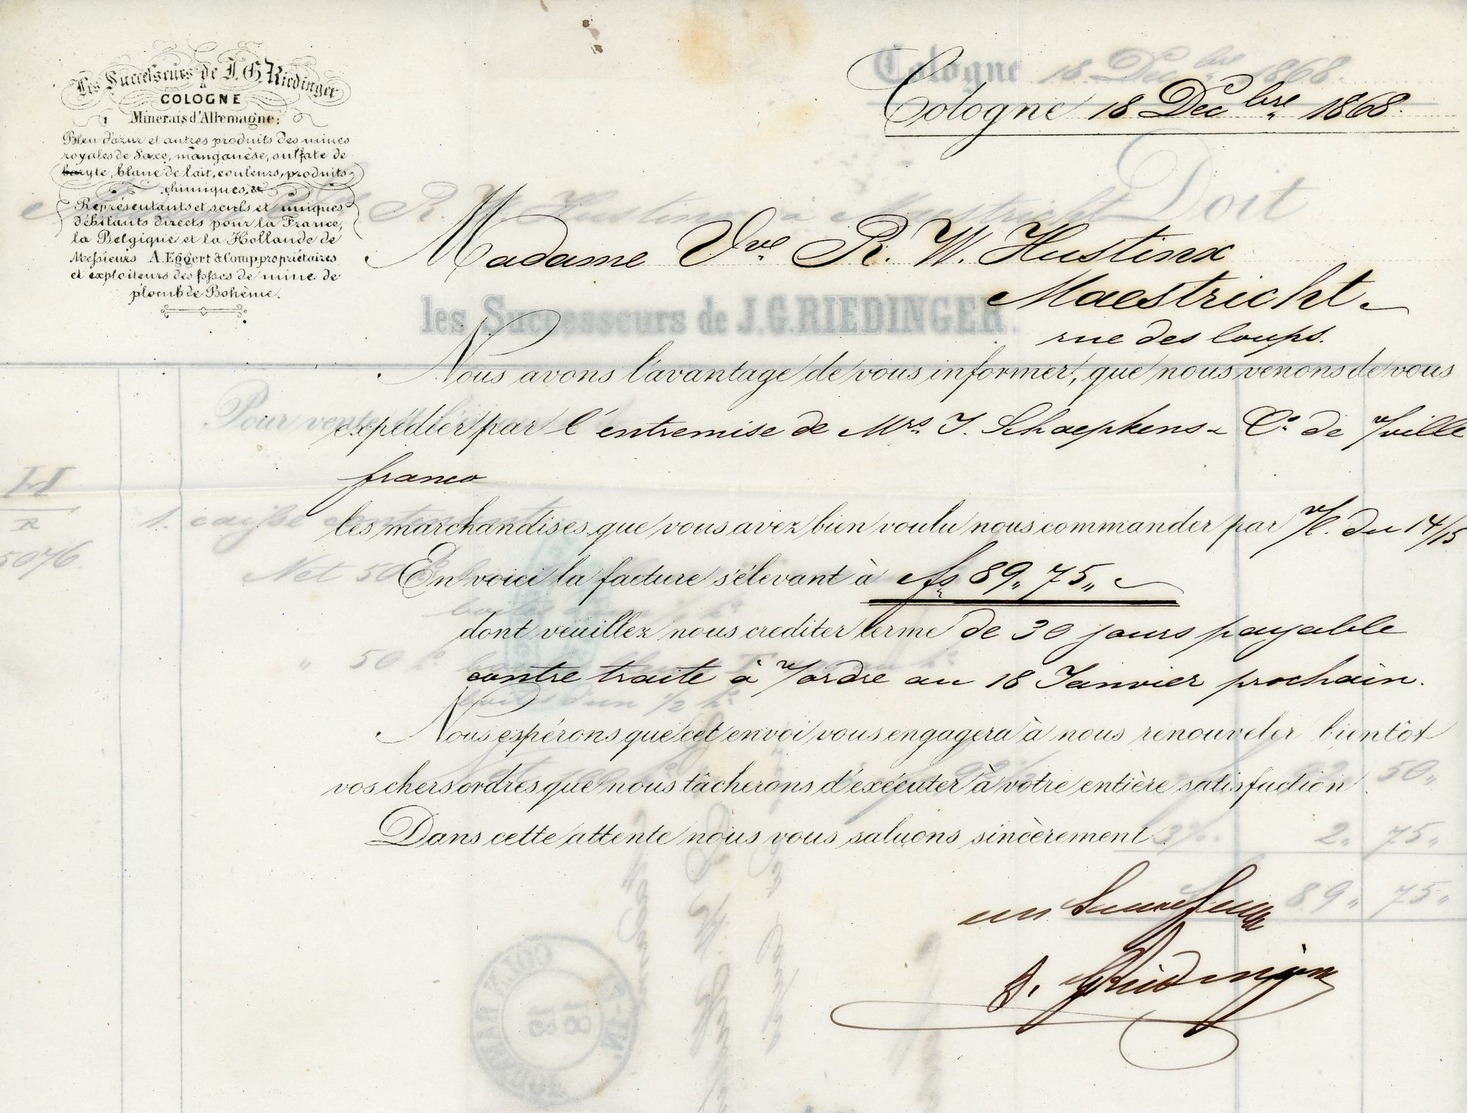 Les Successeurs de J. G. Riedinger
à
COLOGNE
Minerais d'Allemagne:
Bleu d'azur et autres produits des mines
royales de Saxe, manganèse, sulfate de
baryte, blanc de lait, couleurs, produits
chimiques, &
Représentants et seuls et uniques
débitants directs pour la France,
la Belgique et la Hollande de
Messieurs A. Eggert & Comp. propriétaires
et exploiteurs des fosses de mine de
plomb de Bohème.
Cologne 18 Decbre 1868.
Cologne 18 Decbre 1868.
Doit
R. W. Hustinx à Maestricht
Madame Vve R. W. Hustinx
Maestricht
rue des loups.
les Successeurs de J.G.RIEDINGER.
Nous avons l'avantage de vous informer, que nous venons de vous
Pour vente
expédier par l'entremise de Mrs J. Schaepkens & Co. de v/ville
franco
H
R
5076.
1. caisse
les marchandises, que vous avez bien voulu nous commander par v/C. du 14/15
Net 50 k
En voici la facture s'élevant à fs 89,, 75,,
dont veuillez nous créditer terme de 30 jours payable
" 50 k
contre traite à n/ordre au 18 Janvier prochain.
1/2 k
Nous espérons que cet envoi vous engagera à nous renouveler bientôt
50,,
vos chers ordres que nous tâcherons d'exécuter à votre entière satisfaction.
3% 2,, 75,,
Dans cette attente nous vous saluons sincèrement.
89,, 75,,
les Successeurs
J. G. Riedinger
18
12